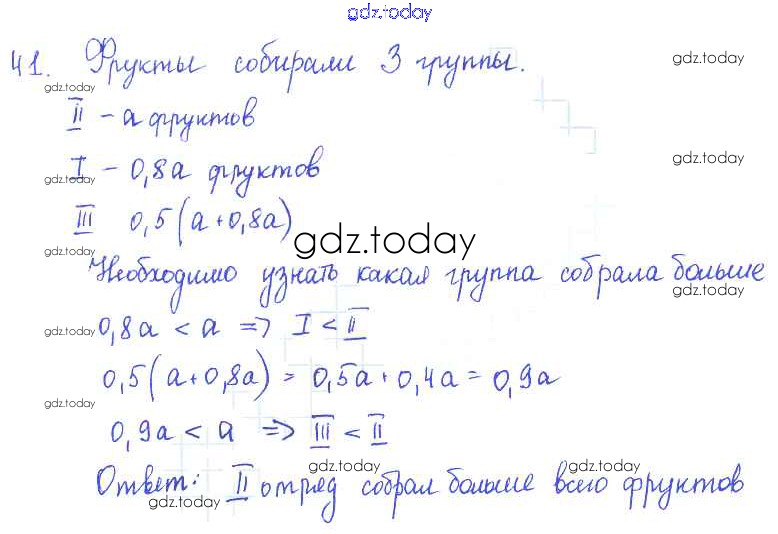 gdz.today
41. Фрукты собирали 3 группы.
gdz.today
gdz.today
II - a фруктов
gdz.today
I - 0,8a фруктов
gdz.today
III 0,5(a+0,8a)
gdz.today
gdz.today
Необходимо узнать какая группа собрала больше
gdz.today
gdz.today 0,8a < a => I < II
0,5(a+0,8a) = 0,5a + 0,4a = 0,9a
gdz.today
0,9a < a => III < II
gdz.today gdz.today
Ответ: II отряд собрал больше всего фруктов
gdz.today